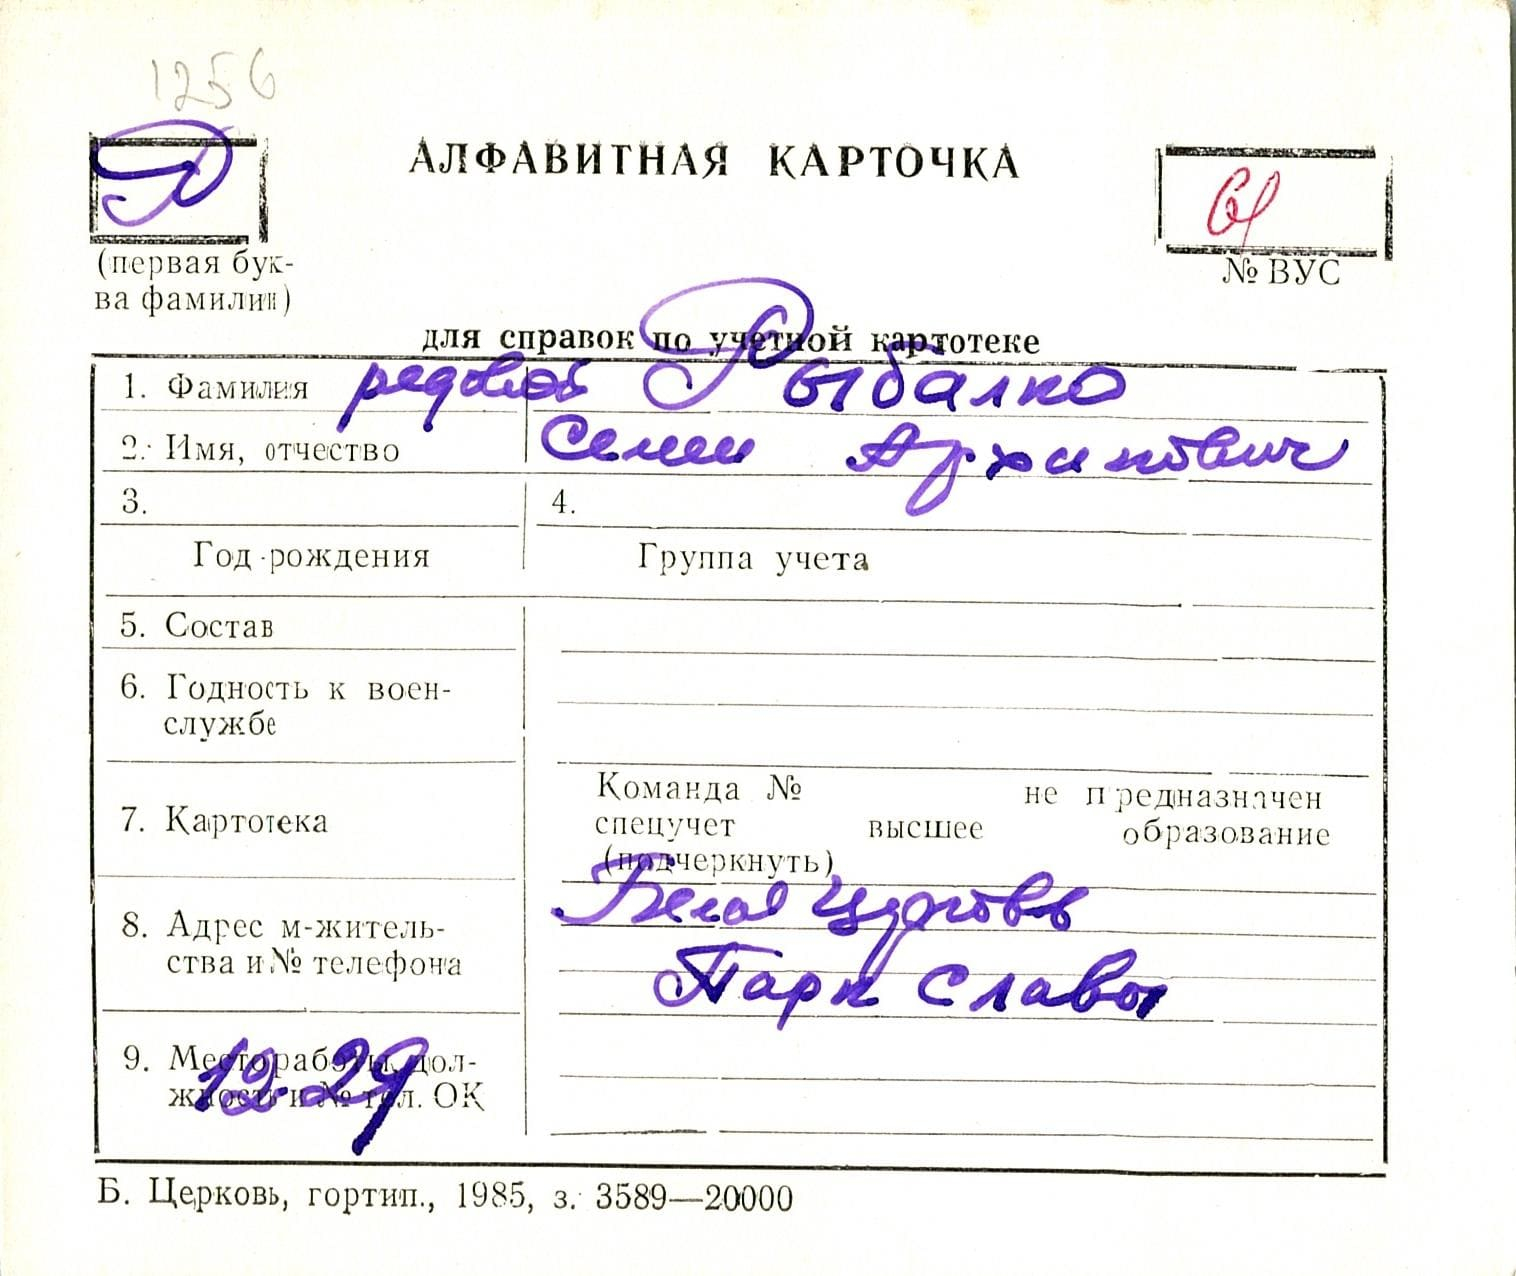 1256
Р
АЛФАВИТНАЯ КАРТОЧКА
61
(первая бук-
ва фамилии)
№ ВУС
для справок по учетной картотеке
1. Фамилия рядовой Рыбалко
2. Имя, отчество Семен Архипович
3. 4.
Год рождения Группа учета
5. Состав
6. Годность к воен-
службе
7. Картотека
Команда № не предназначен
спецучет высшее образование
(подчеркнуть)
8. Адрес м-житель-
ства и № телефона
Белая Церковь
Парк Славы
9. Место работы, дол-
жность и № тел. ОК
12-29
Б. Церковь, гортип., 1985, з. 3589—20000